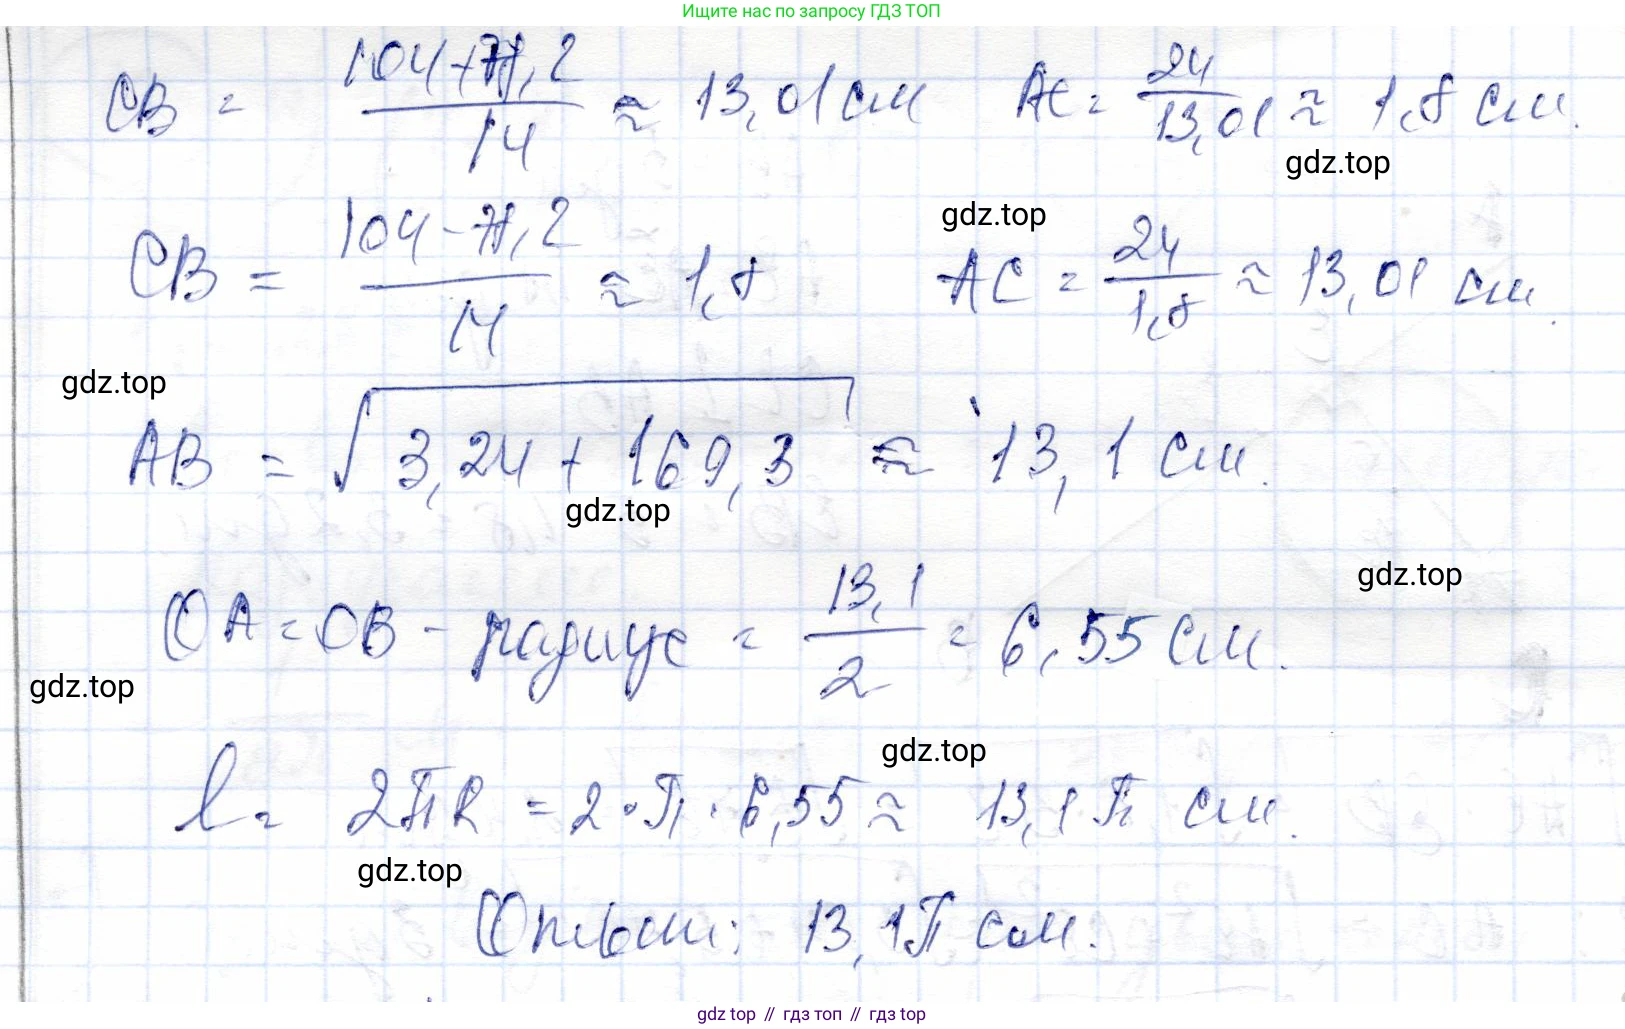 Ищите нас по запросу ГДЗ ТОП
CB = (104 + 78,2)/14 ≈ 13,01 см AC = 24/13,01 ≈ 1,8 см.
gdz.top
gdz.top
CB = (104 - 78,2)/14 ≈ 1,8 AC = 24/1,8 ≈ 13,01 см.
gdz.top
AB = √(3,24 + 169,3) ≈ 13,1 см.
gdz.top
gdz.top
OA = OB - радиус = 13,1/2 = 6,55 см.
gdz.top
gdz.top
l = 2πR = 2·π·6,55 ≈ 13,1π см.
gdz.top
Ответ: 13,1π сом.
gdz.top // гдз топ // гдз top